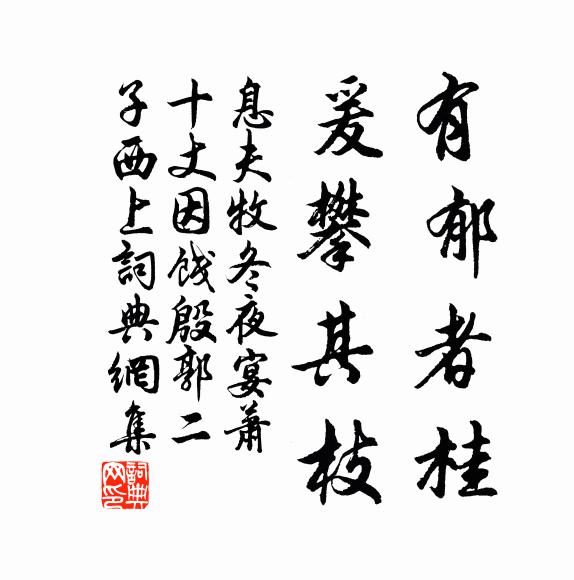 有郁者桂
爰攀其枝
息夫牧冬夜宴萧
十丈因饯殷郭二
子西上詞典網集
詞典網印